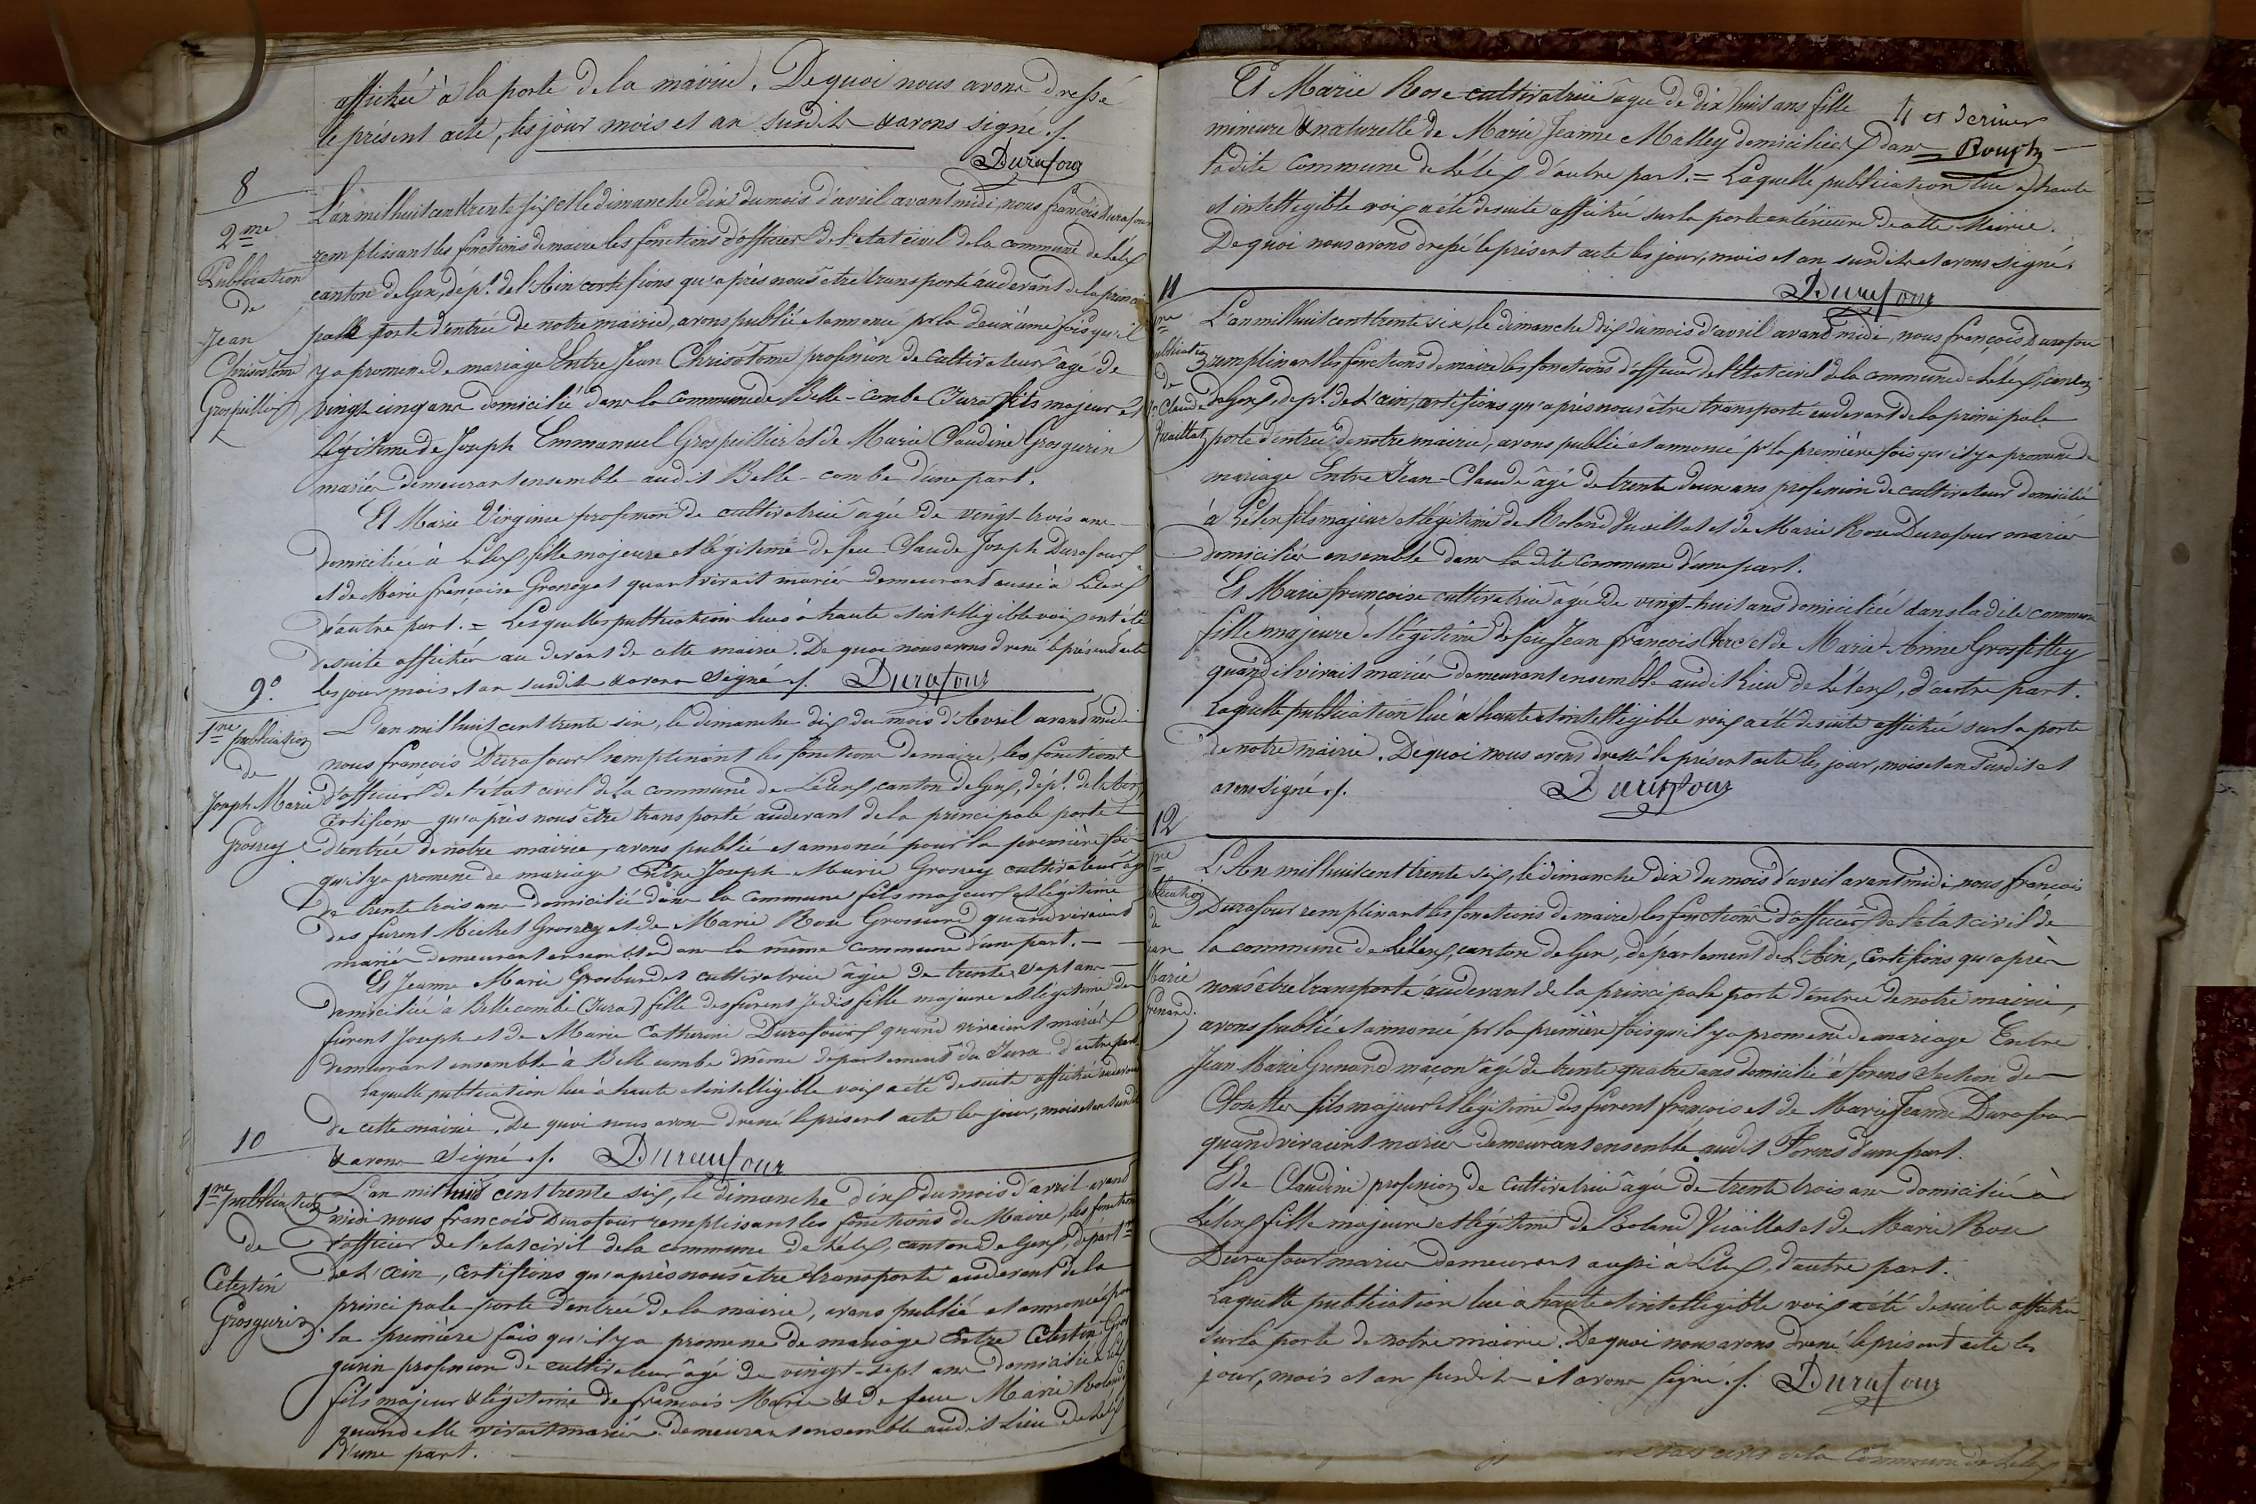 affichée à la porte de la mairie. De quoi nous avons dressé
le présent acte, les jour mois et an susdits & avons signé ./.
Durafour
8
2me
Publication
de
Jean
Chrisostôme
Grospellier
L'an mil huit cent trente six et le dimanche dix du mois d'avril avant midi, nous françois Durafour
remplissant les fonctions de maire les fonctions d'officier de l'etat civil de la commune de Lélex
canton de Gex, dépt. de l'Ain certifions qu'après nous être transporté au devant de la princi
palle porte d'entrée de notre mairie, avons publié et annoncé pr la deuxième fois qu'il
y a promesse de mariage Entre Jean Chrisôtome profession de Cultivateur âgé de
vingt cinq ans domicilié dans la commune de Belle-combe (Jura) fils majeur et
légitime de Joseph Emmanuel Grospellier et de Marie Claudine Grosgurin
mariés demeurant ensemble audit Belle-combe d'une part.
Et Marie Virginie profession de cultivatrice âgée de vingt-trois ans
domiciliée à Lélex, fille majeure et légitime de feu Claude Joseph Durafour
et de Marie françoise quand vivait mariés demeurant aussi à Lélex
d'autre part. = Lesquelles publication lues à haute et intelligible voix ont été
de suite affichée au devant de cette mairie. De quoi nous avons dressé le présent acte
les jour, mois et an susdits & avons signé ./. Durafour
9°
1re publication
de
Joseph Marie
Grosrey
L'an mil huit cent trente six, le dimanche dix du mois d'Avril avant midi
nous françois Durafour remplissant les fonctions de maire, les fonctions
d'officier de l'état civil de la commune de Lélex, canton de Gex, dépt. de l'Ain,
Certifions qu'après nous être transporté au devant de la principale porte
d'entrée de notre mairie, avons publié et annoncé pour la première fois
qu'il y a promesse de mariage Entre Joseph-Marie Grosrey cultivateur âgé
de trente trois ans domicilié dans la commune fils majeur et légitime
des furent Michel Grosrey et de Marie Rose quand viraient
mariés demeurant ensemble dans la même commune d'une part. —
Et Jeanne Marie Grosburdet cultivatrice âgée de trente sept ans
domiciliée à Bellecombe (Jura) fille des furent Jedis fille majeure et légitime des
furent Joseph et de Marie Catherine Durafour quand viraient mariés
demeurant ensemble à Belle combe même département du Jura d'autre part
Laquelle publication lue à haute et intelligible voix a été de suite affichée
de cette mairie. De quoi nous avons dressé le présent acte les jour, mois et an susdits
& avons Signé ./. Duraufour
10
1re publication
de
Célestin
Grosgurin
L'an mil huit cent trente six, le dimanche dix du mois d'avril avant
midi nous françois Durafour remplissant les fonctions de Maire, les fonctions
d'officier de l'etat civil de la commune de Lélex, canton de Gex, départnt
de L'ain, Certifions qu'après nous être transporté au devant de la
principale porte d'entrée de la mairie, avons publié et annoncé pour
la première fois qu'il y a promesse de mariage Entre Célestin Gros
gurin profession de cultivateur âgé de vingt-sept ans domicilié à
fils majeur & légitime de françois Marie & de feue Marie
quand elle vivait mariés demeurant ensemble audit Lieu de Lélex
d'une part.
Et Marie Rose cultivatrice âgée de dix huit ans fille
11 et dernier
mineure & naturelle de Marie Jeanne Malley domiciliées dans
Rougty
ladite commune de Lélex d'autre part. = Laquelle publication lue à haute
et intelligible voix a été de suite affichée sur la porte extérieure de cette Mairie.
De quoi nous avons dressé le présent acte les jour, mois et an susdits et avons signé.
Durafour
11
1re
publication
de
Jn Claude
Vuaillat
L'an mil huit cent trente six, le dimanche dix du mois d'avril avant midi, nous françois Durafour
remplissant les fonctions de maire les fonctions d'officier de l'Etat civil de la commune de Lélex, canton
de Gex, dept. de L'ain, certifions qu'après nous être transporté au devant de la principale
porte d'entrée de notre mairie, avons publié et annoncé pr la première fois qu'il y a promesse de
mariage Entre Jean-Claude âgé de trente deux ans profession de cultivateur domicilié
à Lélex fils majeur et légitime de Roland Vuaillat et de Marie Rose Durafour mariés
domiciliés ensemble dans la dite commune d'une part.
Et Marie françoise cultivatrice âgée de vingt-huit ans domiciliée dans ladite commune
fille majeure et légitime de feu Jean françois Clerc et de Marie Anne Grosfilley
quand il vivait mariés demeurant ensemble audit Lieu de Lélex, d'autre part.
Laquelle publication lue à haute et intelligible voix a été de suite affichée sur la porte
de notre mairie. De quoi nous avons dressé le présent acte les jour, mois et an susdits et
avons signé ./. Durafour
12
1re
publication
Jean
Marie
L'An mil huit cent trente six, le dimanche dix du mois d'avril avant midi, nous François
Durafour remplissant les fonctions de maire, les fonctions d'officier de l'état civil de
la commune de Lélex, canton de Gex, département de L'Ain, Certifions qu'après
nous être transporté au devant de la principale porte d'entrée de notre mairie,
avons publié et annoncé pr la première fois qu'il y a promesse de mariage Entre
Jean Marie maçon âgé de trente quatre ans domicilié à forens Section de
fils majeur et légitime des furent françois et de Marie Jeanne Durafour
quand viraient mariés demeurant ensemble audit Forens d'une part.
Et de Claudine profession de cultivatrice âgée de trente trois ans domiciliée à
Lélex fille majeure et légitime de Roland Vuaillat et de Marie Rose
Durafour mariés demeurant aussi à Lélex, d'autre part.
Laquelle publication lue à haute et intelligible voix a été de suite affichée
sur la porte de notre mairie. De quoi nous avons dressé le présent acte les
jour, mois et an susdits et avons signé ./. Durafour
de la Commune de Lélex